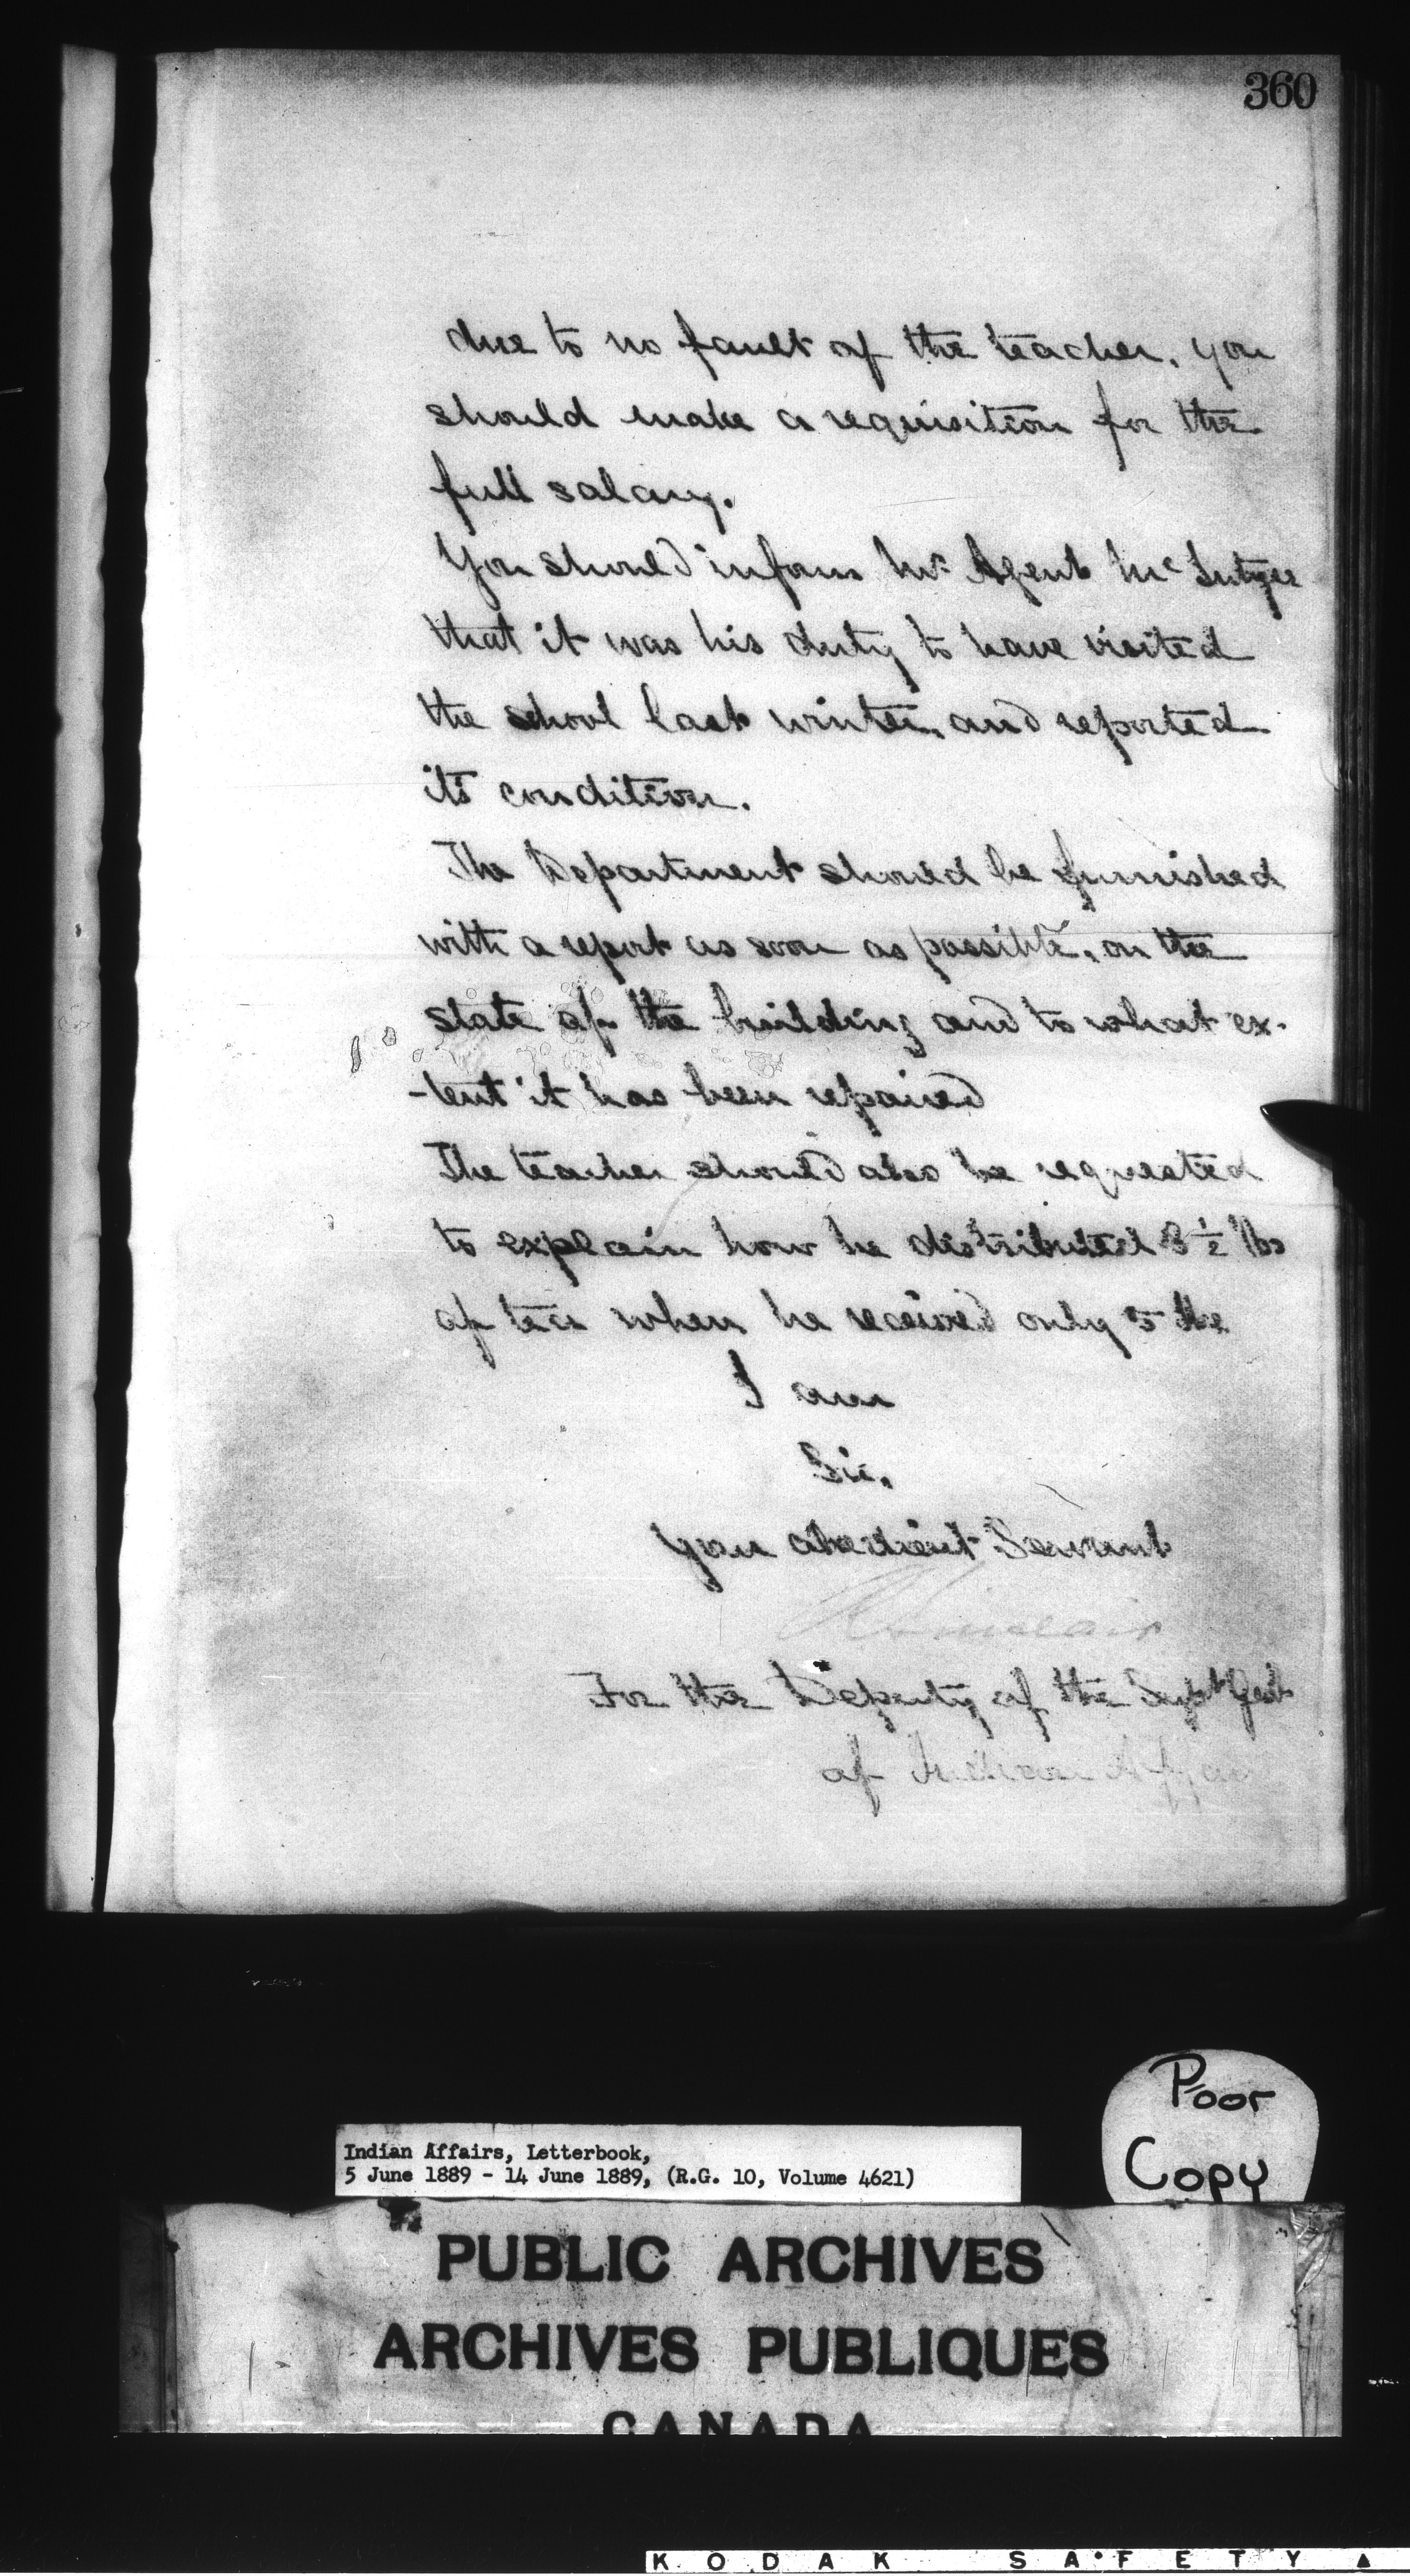 360
due to no fault of the teacher, you
should make a requisition for the
full salary.
You should inform Mr Agent McIntyre
that it was his duty to have visited
the school last winter, and reported
its condition.
The Department should be furnished
with a report as soon as possible, on the
state of the building and to what ex-
-tent it has been repaired
The teacher should also be requested
to explain how he distributed 8½ lbs
of tea when he received only 5 lbs
I am
Sir,
Your obedient Servant
R Sinclair
For the Deputy of the Supt Genl
of Indian Affairs
Poor
Copy
Indian Affairs, Letterbook,
5 June 1889 - 14 June 1889, (R.G. 10, Volume 4621)
PUBLIC ARCHIVES
ARCHIVES PUBLIQUES
CANADA
KODAK SAFETY